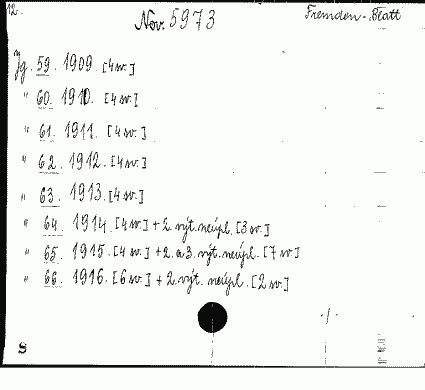 12.
Nov. 5973
Fremden-Blatt
Jg. 59. 1909. [4 sv.]
" 60. 1910. [4 sv.]
" 61. 1911. [4 sv.]
" 62. 1912. [4 sv.]
" 63. 1913. [4 sv.]
" 64. 1914. [4 sv.] + 2. výt. neúpl. [3 sv.]
" 65. 1915. [4 sv.] + 2. a 3. výt. neúpl. [7 sv.]
" 66. 1916. [6 sv.] + 2. výt. neúpl. [2 sv.]
./.
S